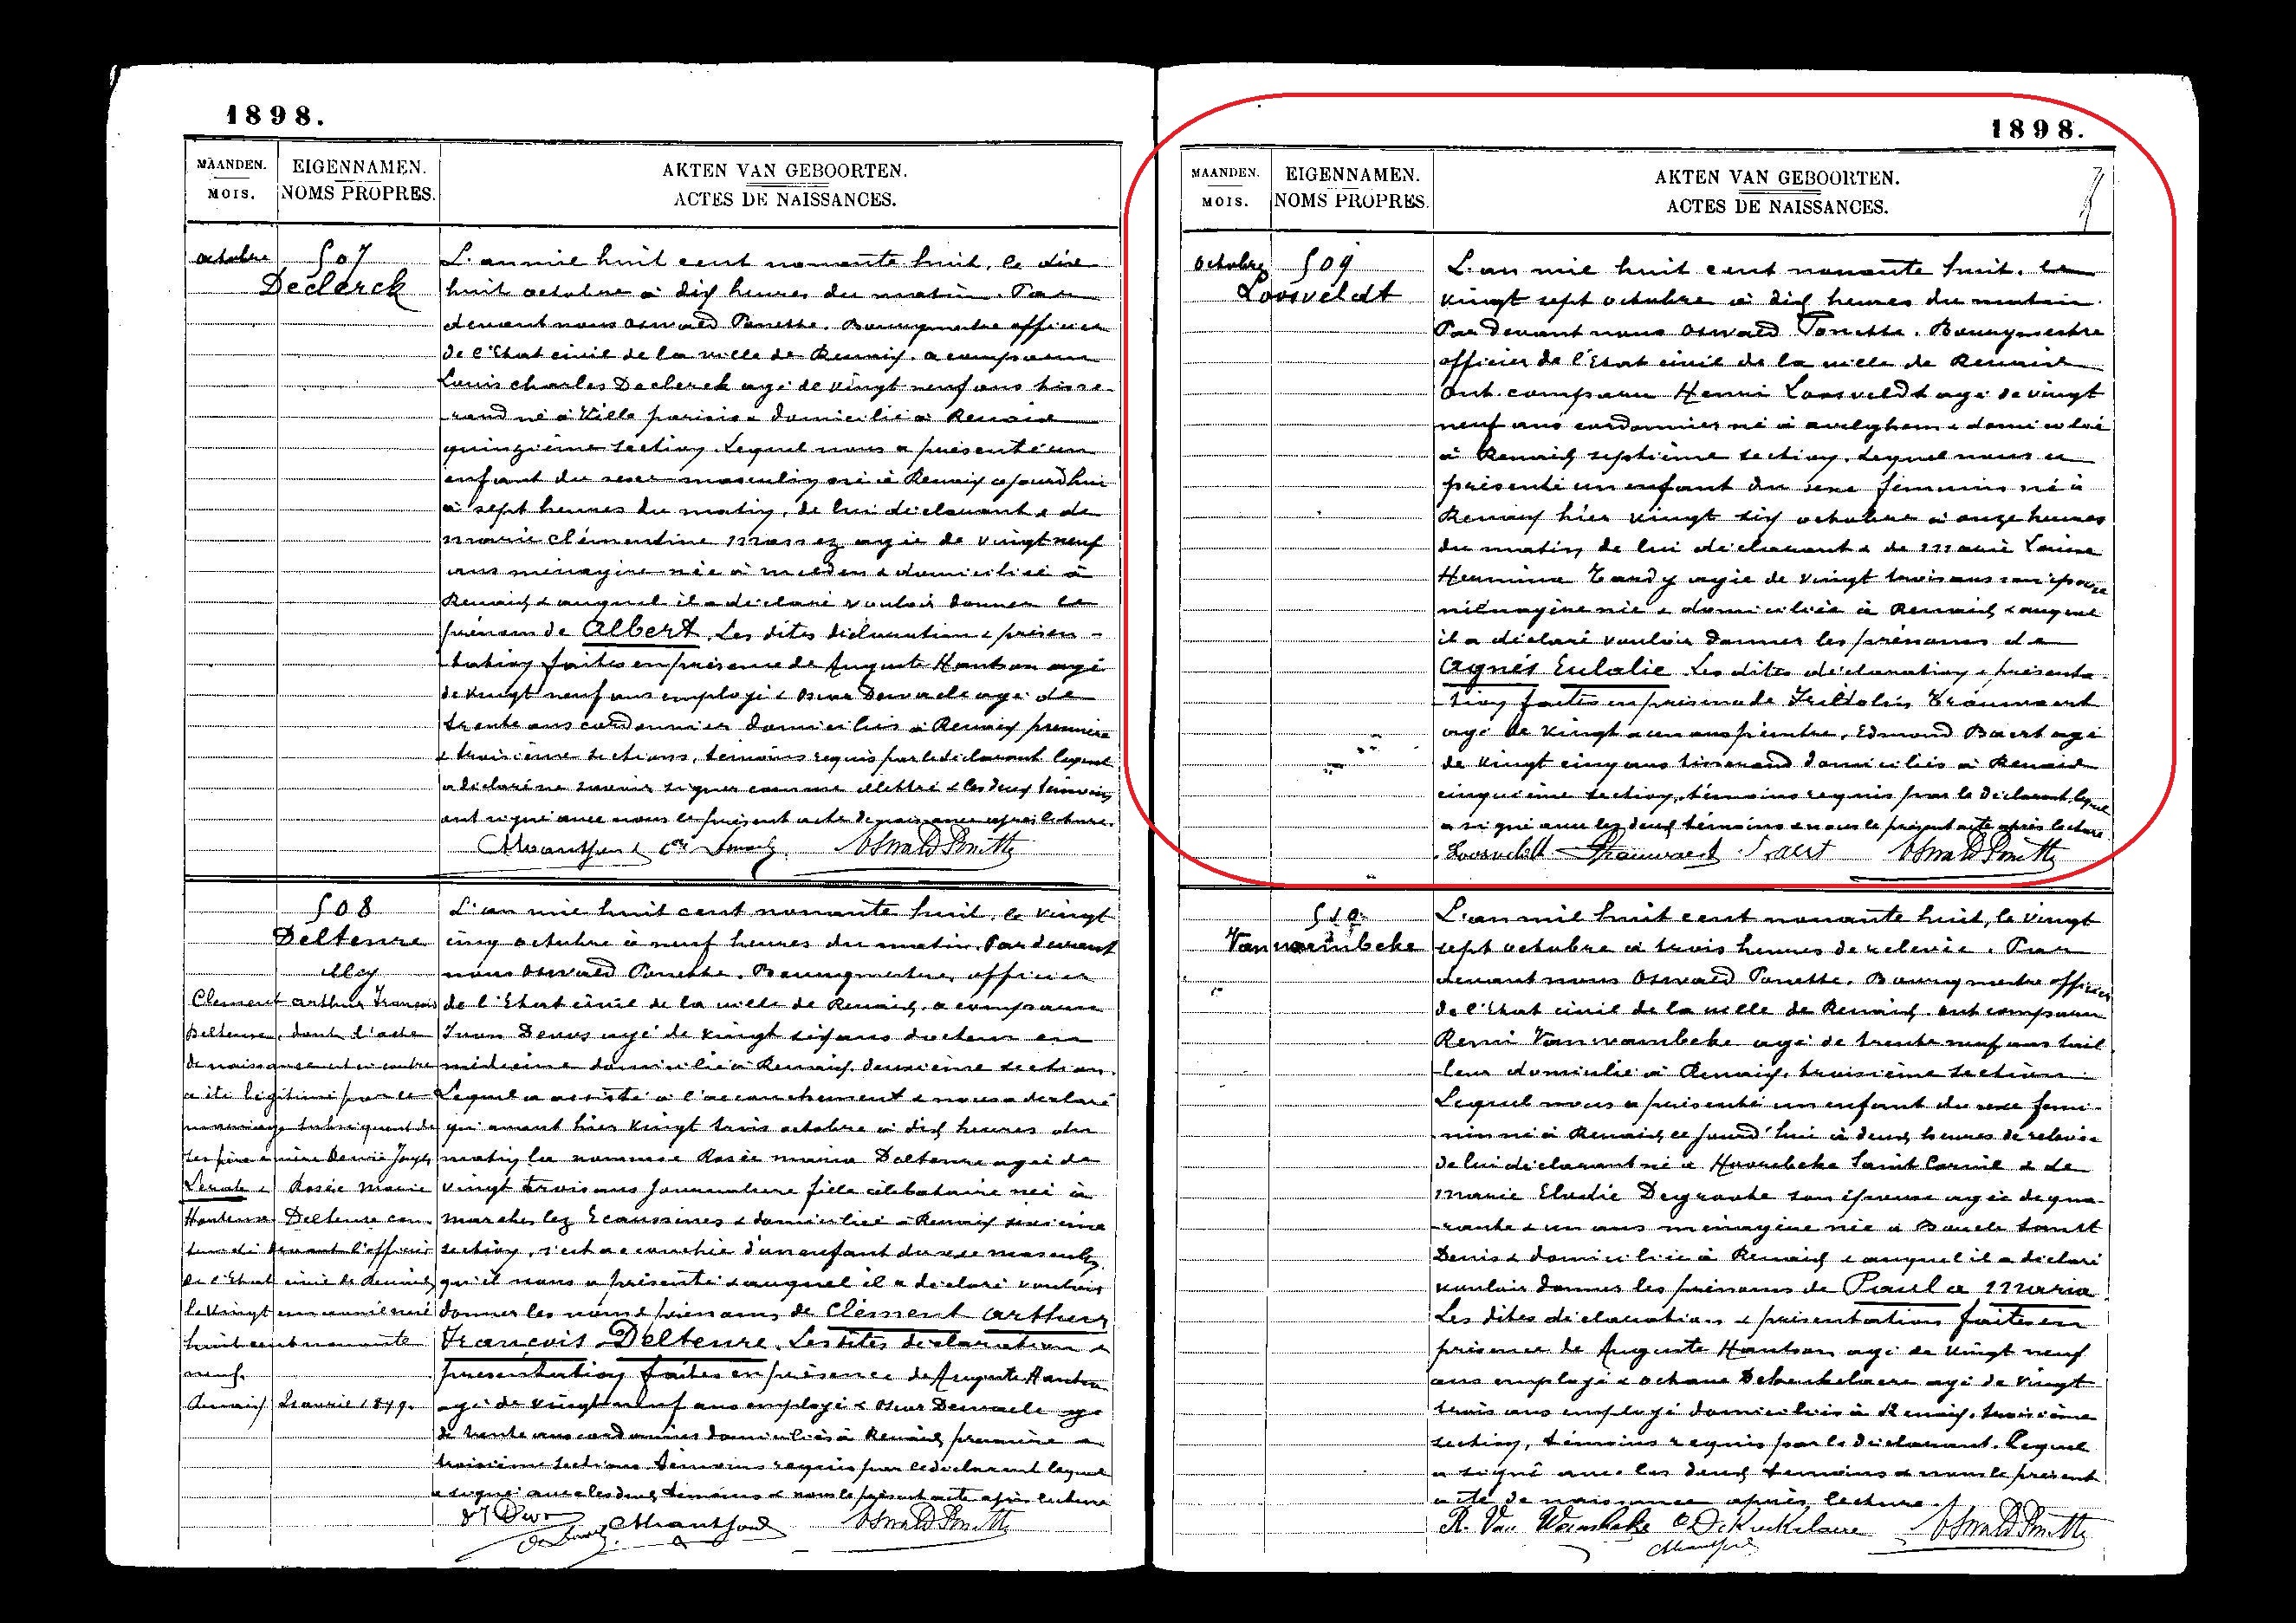 1898.
MAANDEN.
MOIS.
EIGENNAMEN.
NOMS PROPRES.
AKTEN VAN GEBOORTEN.
ACTES DE NAISSANCES.
octobre
507
Declerck
L'an mil huit cent nonante huit, le dix
huit octobre à dix heures du matin. Par
devant nous Oswald Ponette. Bourgmestre officier
de l'Etat civil de la ville de Renaix. a comparu
Louis Charles Declerck agé de vingt neuf ans tisse-
rand né à domicilié à Renaix
quinzième section. Lequel nous a présenté un
enfant du sexe masculin né à Renaix cejourd'hui
à sept heures du matin, de lui déclarant & de
Marie Clémentine agée de vingt neuf
ans ménagère née à & domiciliée à
Renaix & auquel il a déclaré vouloir donner le
prénom de Albert. Les dites déclaration & présen-
tation faites en présence de Auguste agé
de vingt neuf ans employé & Oscar agé de
trente ans cordonnier domiciliés à Renaix première
& troisième sections, témoins requis par le déclarant lequel
a déclaré ne savoir signer comme illettré & les deux témoins
ont signé avec nous le présent acte de naissance après lecture.
Oswald Ponette
508
Deltenre
Clement Arthur François
Deltenre, dont l'acte
de naissance est ci contre
a été légitimé par le
mariage subséquent de
ses père & mère
& Rosée Marie
Hortense Deltenre con-
devant l'officier
de l'Etat civil de Renaix
le vingt un avril mil
huit cent nonante
neuf.
Renaix avril 1899.
L'an mil huit cent nonante huit, le vingt
cinq octobre à neuf heures du matin. Par devant
nous Oswald Ponette. Bourgmestre, officier
de l'Etat civil de la ville de Renaix. a comparu
agé de vingt six ans docteur en
médecine domicilié à Renaix. deuxième section.
Lequel a assisté à l'accouchement & nous a déclaré
qu'avant hier vingt trois octobre à dix heures du
matin la nommée Rosée Maria Deltenre agée de
vingt trois ans journalière fille célibataire née à
Marche lez Ecaussines & domiciliée à Renaix sixième
section, s'est accouchée d'un enfant du sexe masculin
qu'il nous a présenté & auquel il a déclaré vouloir
donner les nom & prénoms de Clément Arthur
François Deltenre. Les dites déclaration &
présentation faites en présence de Auguste
agé de vingt neuf ans employé & Oscar agé
de trente ans cordonnier domiciliés à Renaix première &
troisième sections témoins requis par le déclarant lequel
a signé avec les deux témoins & nous le présent acte après lecture
Oswald Ponette
1898.
MAANDEN.
MOIS.
EIGENNAMEN.
NOMS PROPRES.
AKTEN VAN GEBOORTEN.
ACTES DE NAISSANCES.
octobre
509
Loosveldt
L'an mil huit cent nonante huit. le
vingt sept octobre à dix heures du matin.
Par devant nous Oswald Ponette. Bourgmestre
officier de l'Etat civil de la ville de Renaix
ont comparu Henri Loosveldt agé de vingt
neuf ans cordonnier né à Avelghem & domicilié
à Renaix septième section. Lequel nous a
présenté un enfant du sexe féminin né à
Renaix hier vingt six octobre à onze heures
du matin de lui déclarant & de Marie Louise
Hermina Tandy agée de vingt trois ans son épouse
ménagère née & domiciliée à Renaix & auquel
il a déclaré vouloir donner les prénoms de
Agnés Eulalie. Les dites déclaration & présenta-
tion faites en présence de Fridolin
agé de vingt & un ans peintre, Edmond Baert agé
de vingt cinq ans tisserand domiciliés à Renaix
cinquième section, témoins requis par le déclarant, lequel
a signé avec les deux témoins & nous le présent acte après lecture
Loosveldt Baert Oswald Ponette
510
Vanwambeke
L'an mil huit cent nonante huit, le vingt
sept octobre à trois heures de relevée. Par
devant nous Oswald Ponette. Bourgmestre officier
de l'Etat civil de la ville de Renaix. ont comparu
Remi Vanwambeke agé de trente neuf ans tail
leur domicilié à Renaix. troisième section.
Lequel nous a présenté un enfant du sexe fémi-
nin né à Renaix, ce jourd'hui à deux heures de relevée
de lui déclarant né à Hoorebeke Saint Corneil & de
Marie Elodie Degroote son épouse agée de qua-
rante & un ans ménagère née à Boucle Saint
Denis & domiciliée à Renaix & auquel il a déclaré
vouloir donner les prénoms de Paula Maria.
Les dites déclaration & présentation faites en
présence de Auguste agé de vingt neuf
ans employé & Octave agé de vingt
trois ans employé domiciliés à Renaix. troisième
section, témoins requis par le déclarant. Lequel
a signé avec les deux témoins & nous le présent
acte de naissance après lecture.
R. Van Wambeke Oswald Ponette